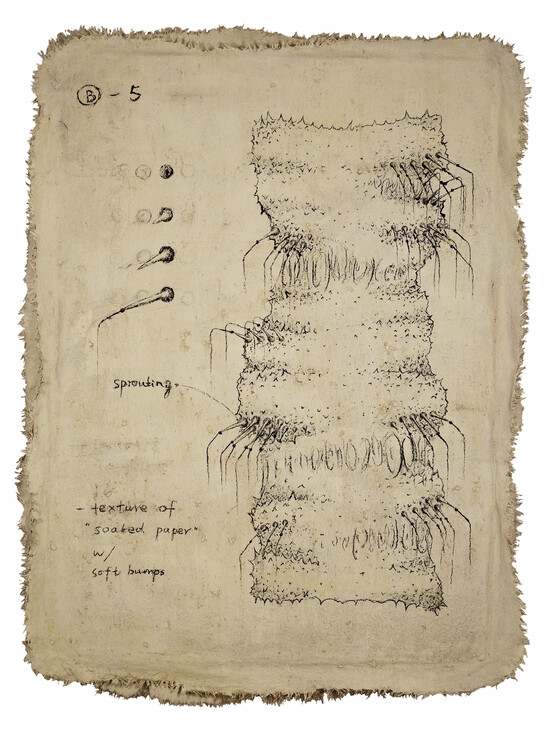 Ⓑ - 5
sprouting
- texture of
"soaked paper"
w/
soft bumps